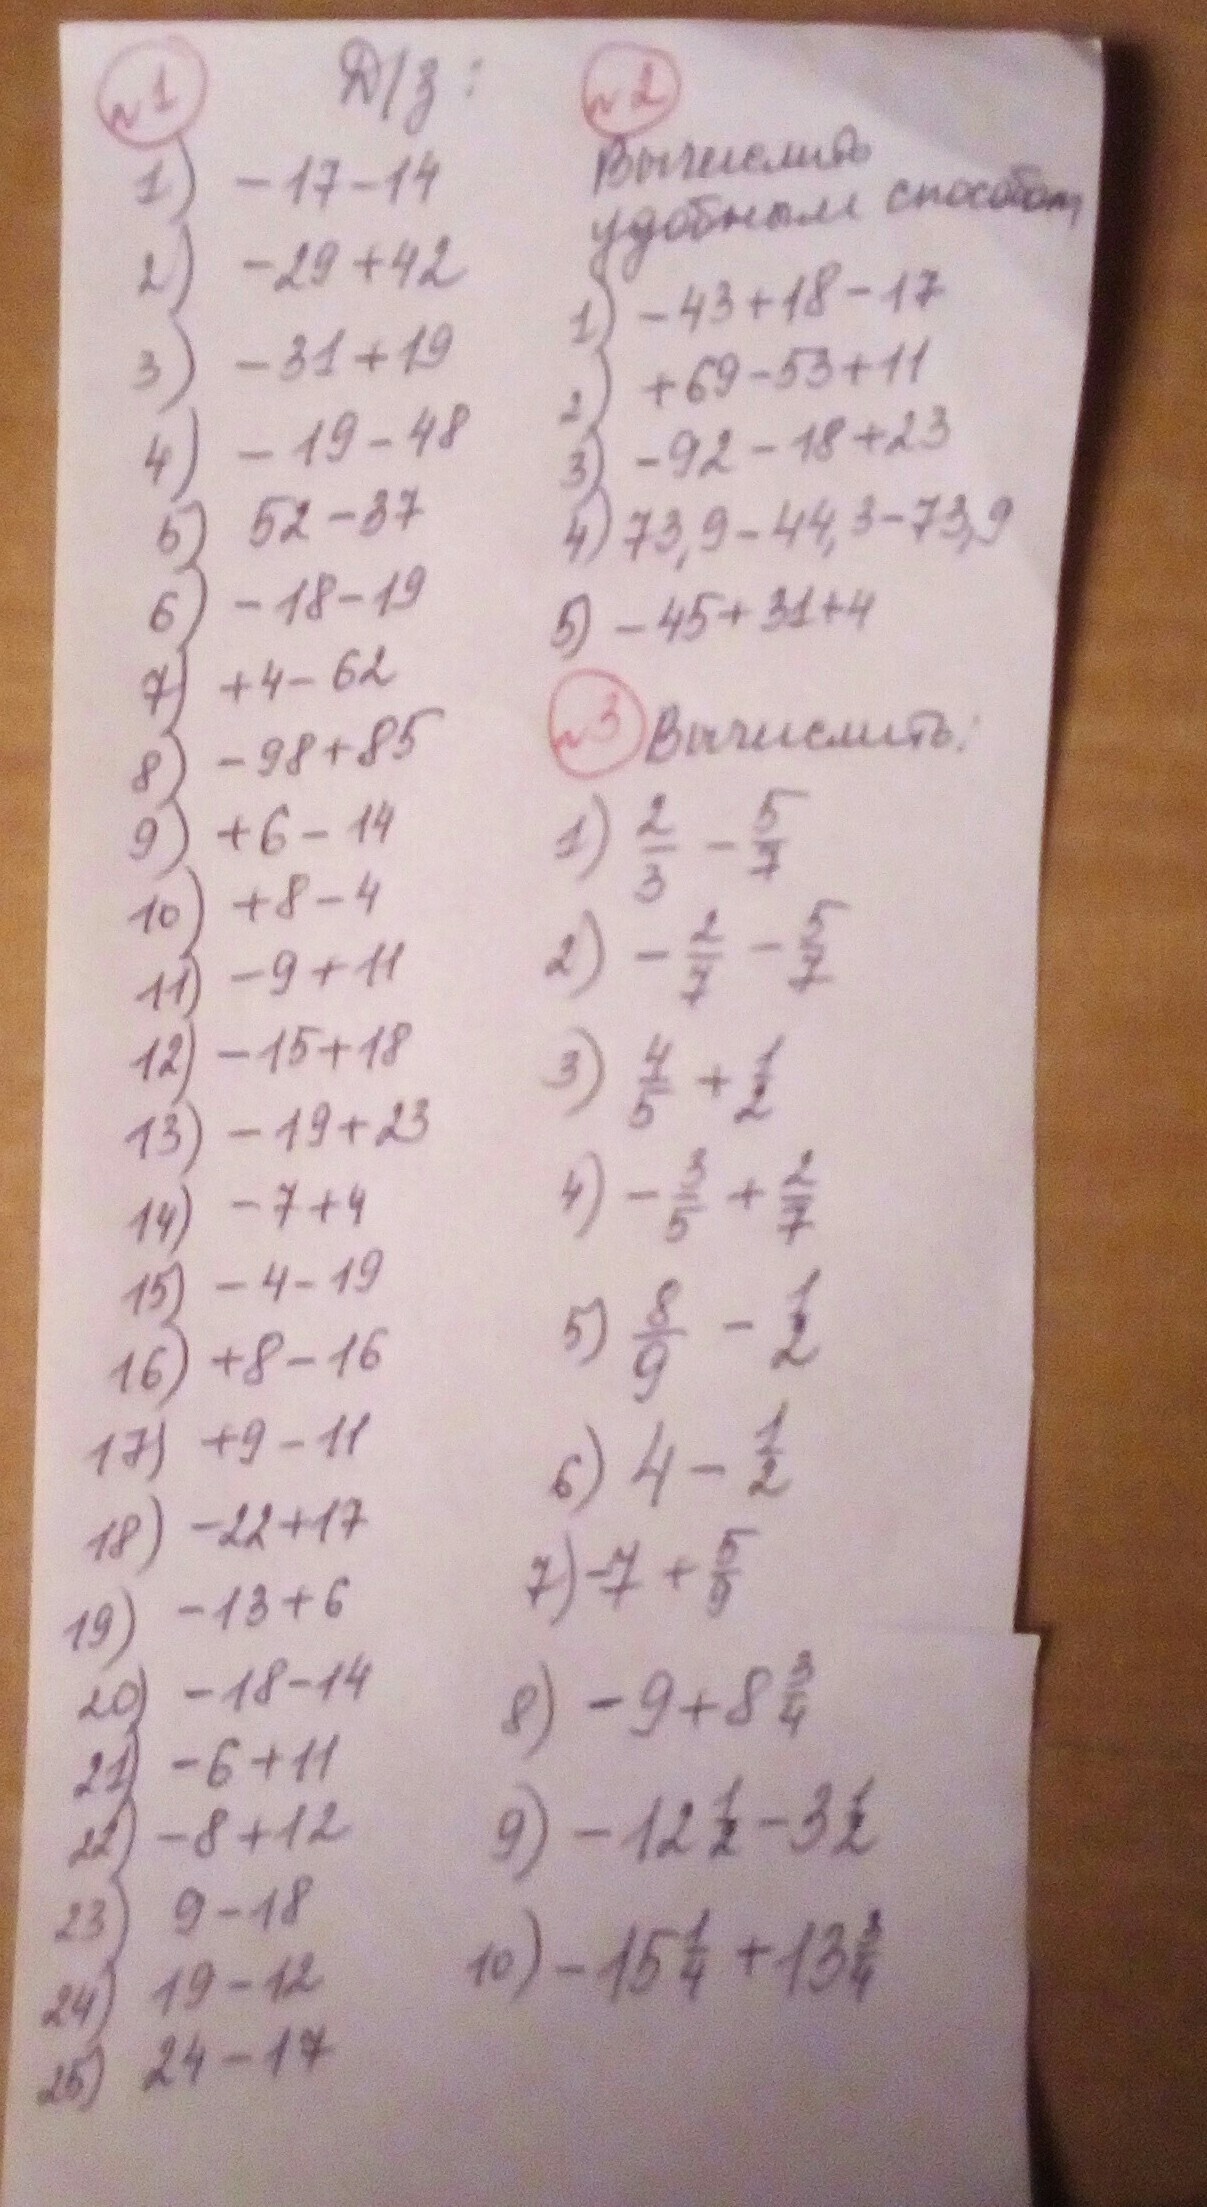 Д/з:
№1
1) -17-14
2) -29+42
3) -31+19
4) -19-48
5) 52-37
6) -18-19
7) +4-62
8) -98+85
9) +6-14
10) +8-4
11) -9+11
12) -15+18
13) -19+23
14) -7+4
15) -4-19
16) +8-16
17) +9-11
18) -22+17
19) -13+6
20) -18-14
21) -6+11
22) -8+12
23) 9-18
24) 19-12
25) 24-17
№2
Вычислить
удобным способом
1) -43+18-17
2) +69-53+11
3) -92-18+23
4) 73,9-44,3-73,9
5) -45+31+4
№3 Вычислить:
1) 2/3 - 5/7
2) - 2/7 - 5/7
3) 4/5 + 1/2
4) - 3/5 + 2/7
5) 8/9 - 1/2
6) 4 - 1/2
7) -7 + 5/9
8) -9+8 3/4
9) -12 1/2 - 3 1/2
10) -15 1/4 + 13 3/4